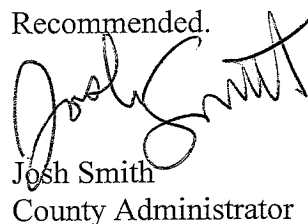 Recommended.
Josh Smith
Josh Smith
County Administrator